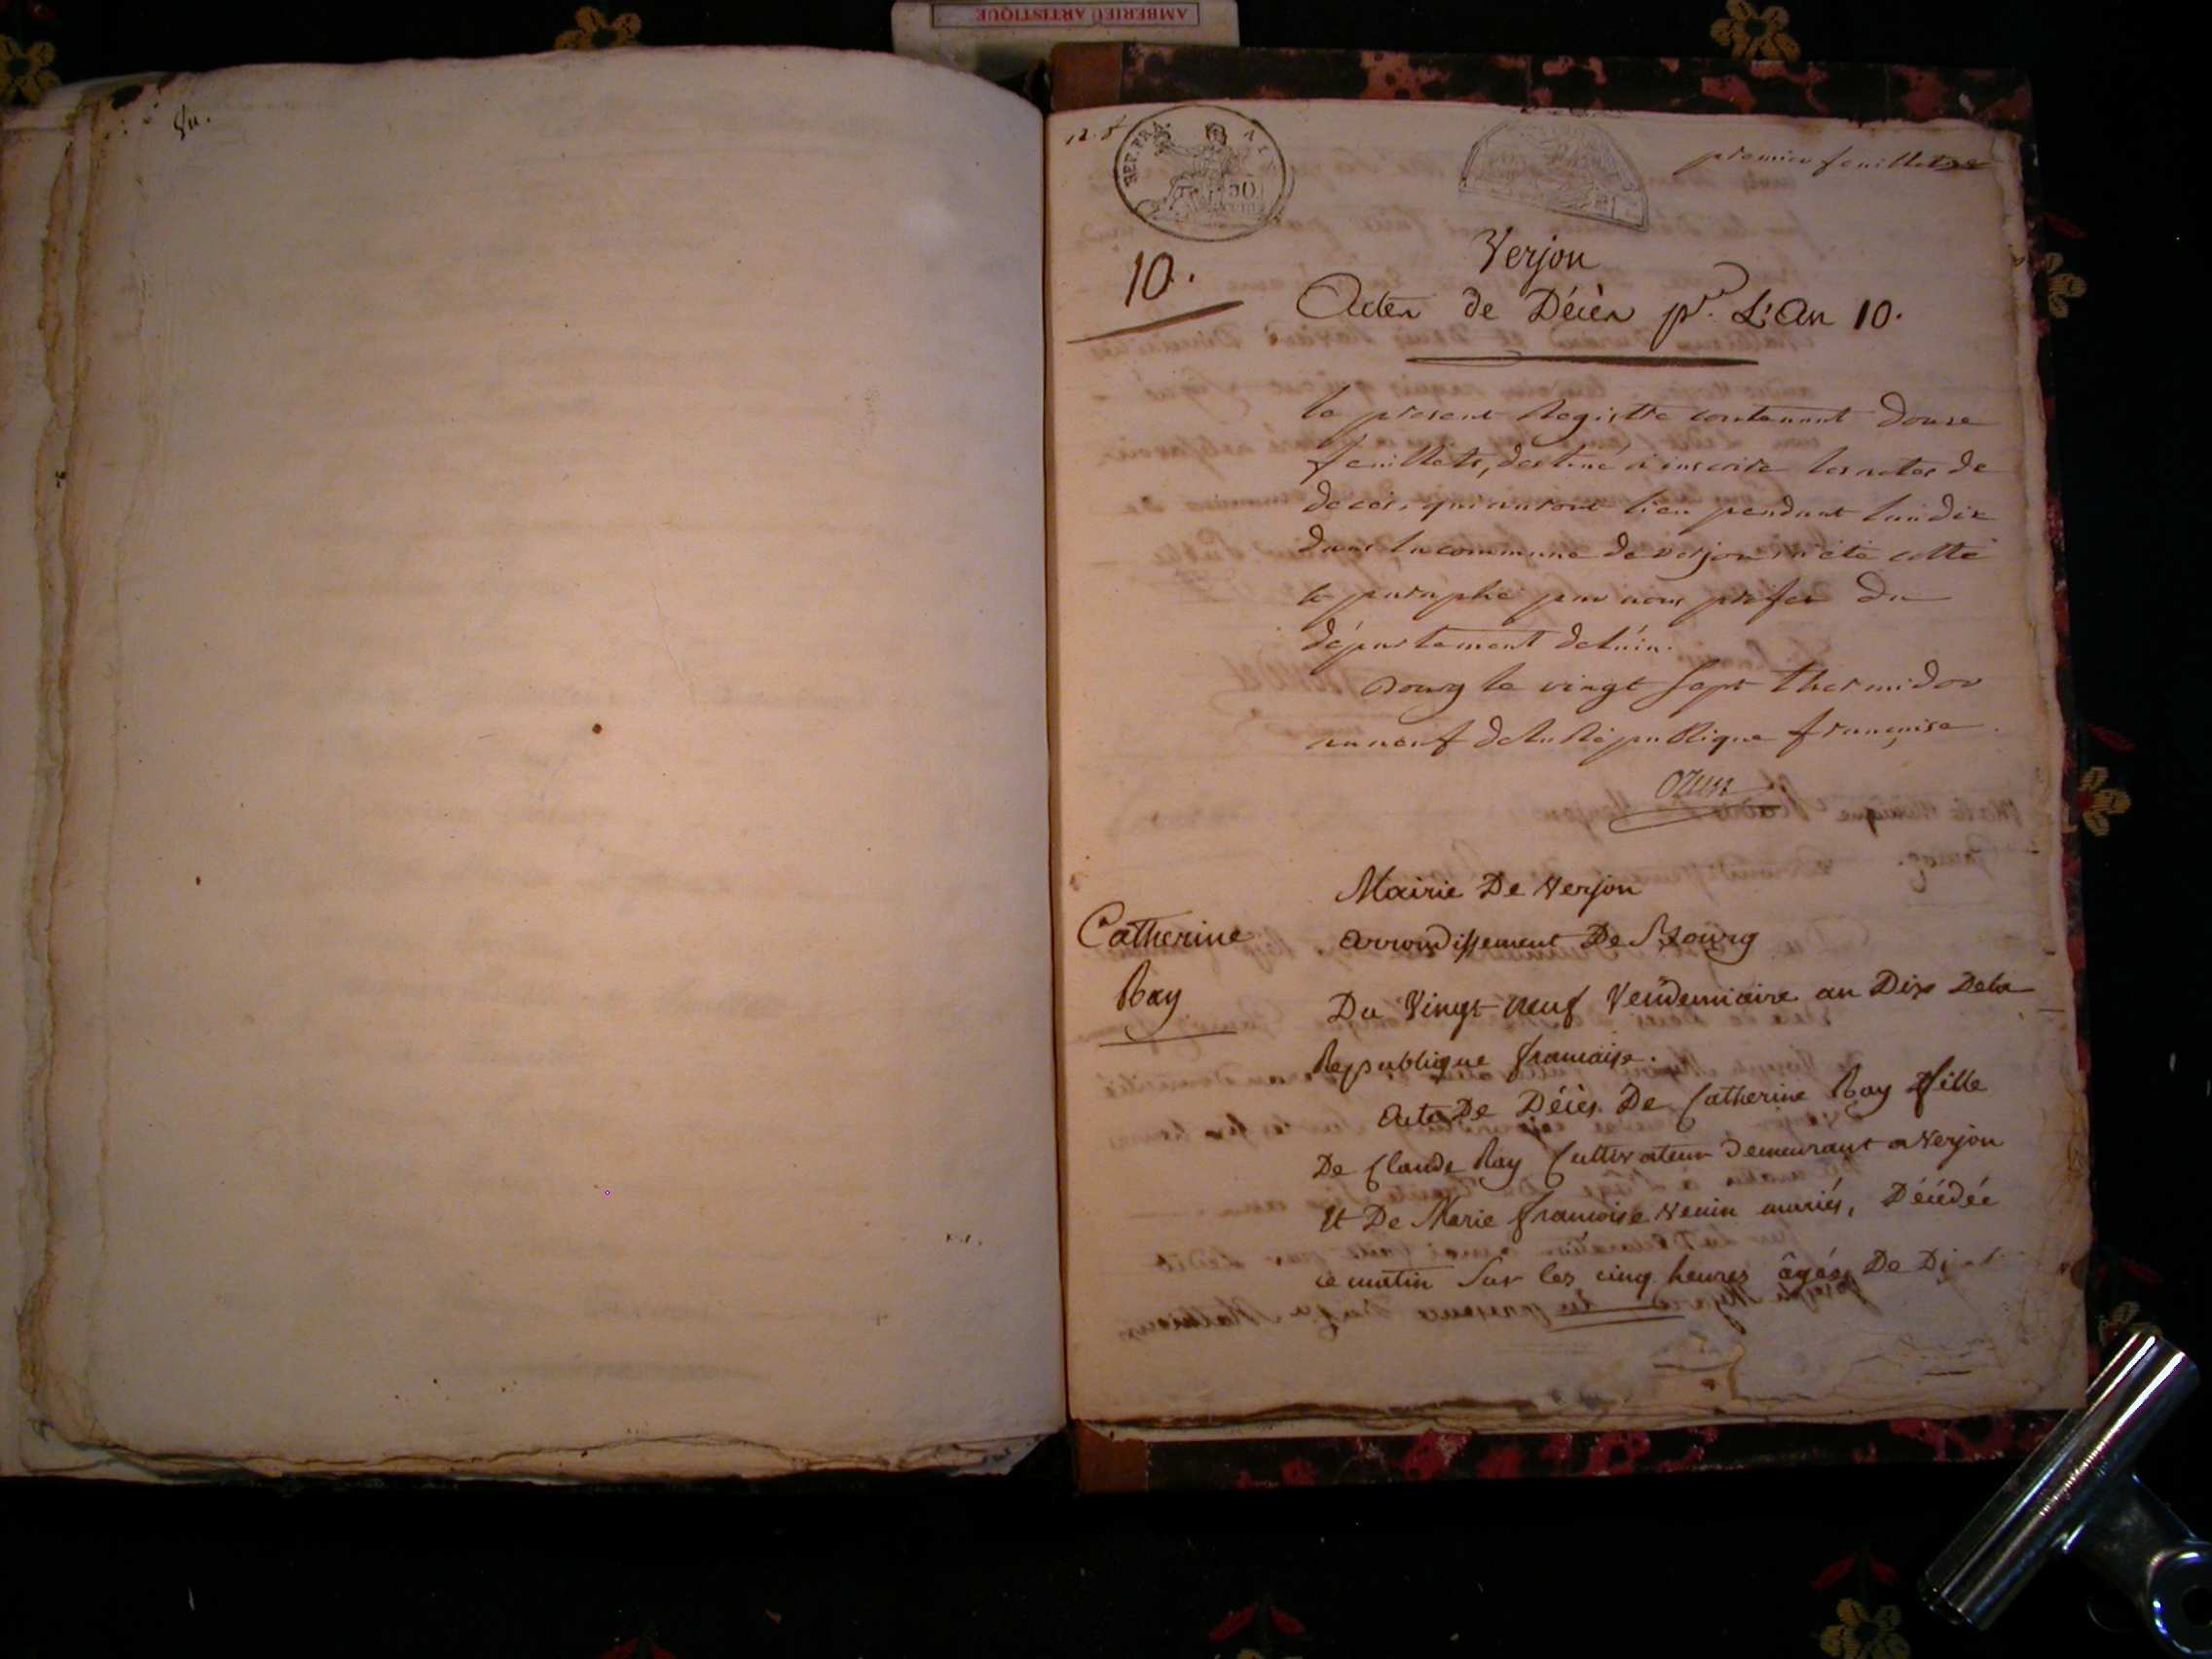 AMBERIEU ARTISTIQUE
12. f
REP. FRA.
50
premier feuillet
10.
Verjon
Actes de Décès pr. L'An 10.
le present Registre contenant douse
feuillets, destiné a inscrire les actes de
deces, qui auront lieu pendant l'an dix
dans la commune de verjon a été cotté
et paraphé par nous prefet du
département de l'ain.
Bourg le vingt sept thermidor
an neuf de la République française
Ozun
Mairie De Verjon
Catherine
Ray
arrondissement De Bourg
Du Vingt neuf Vendemiaire an Dix Dela
Republique francaise.
Acte De Décès De Catherine Ray fille
De Claude Ray Cultivateur Demeurant a Verjon
Et De Marie francoise mariés, Décédée
ce matin Sur les cinq heures âgée De